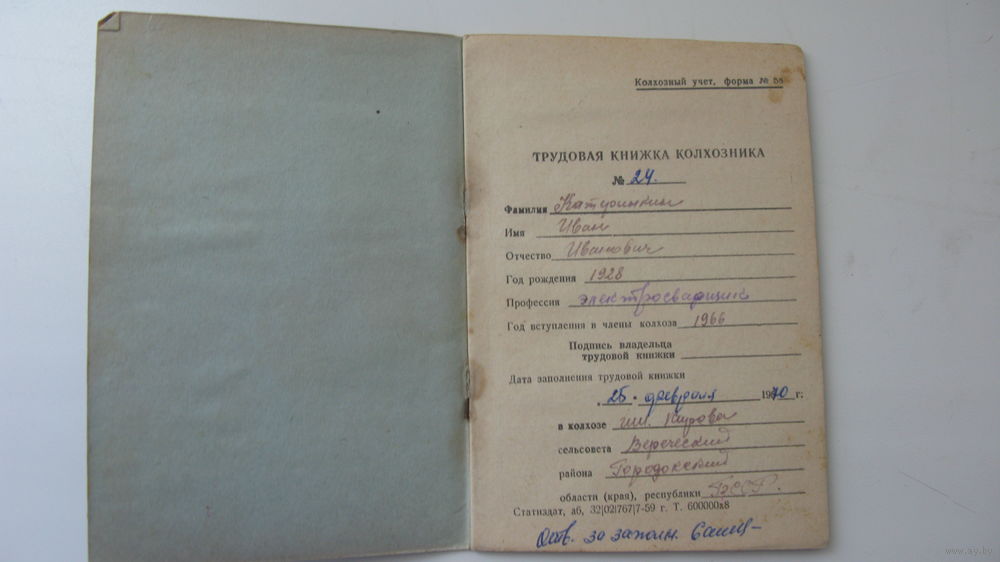 Колхозный учет, форма № 58
ТРУДОВАЯ КНИЖКА КОЛХОЗНИКА
№ 24.
Фамилия
Имя Иван
Отчество Иванович
Год рождения 1928
Профессия электросварщик
Год вступления в члены колхоза 1966
Подпись владельца
трудовой книжки
Дата заполнения трудовой книжки
25 февраля 1970 г.
в колхозе им. Кирова
сельсовета Вереческий
района Городокский
области (края), республики БССР.
Статиздат, аб, 32|02|767|7-59 г. Т. 600000x8
Отв. за заполн.
www.ay.by